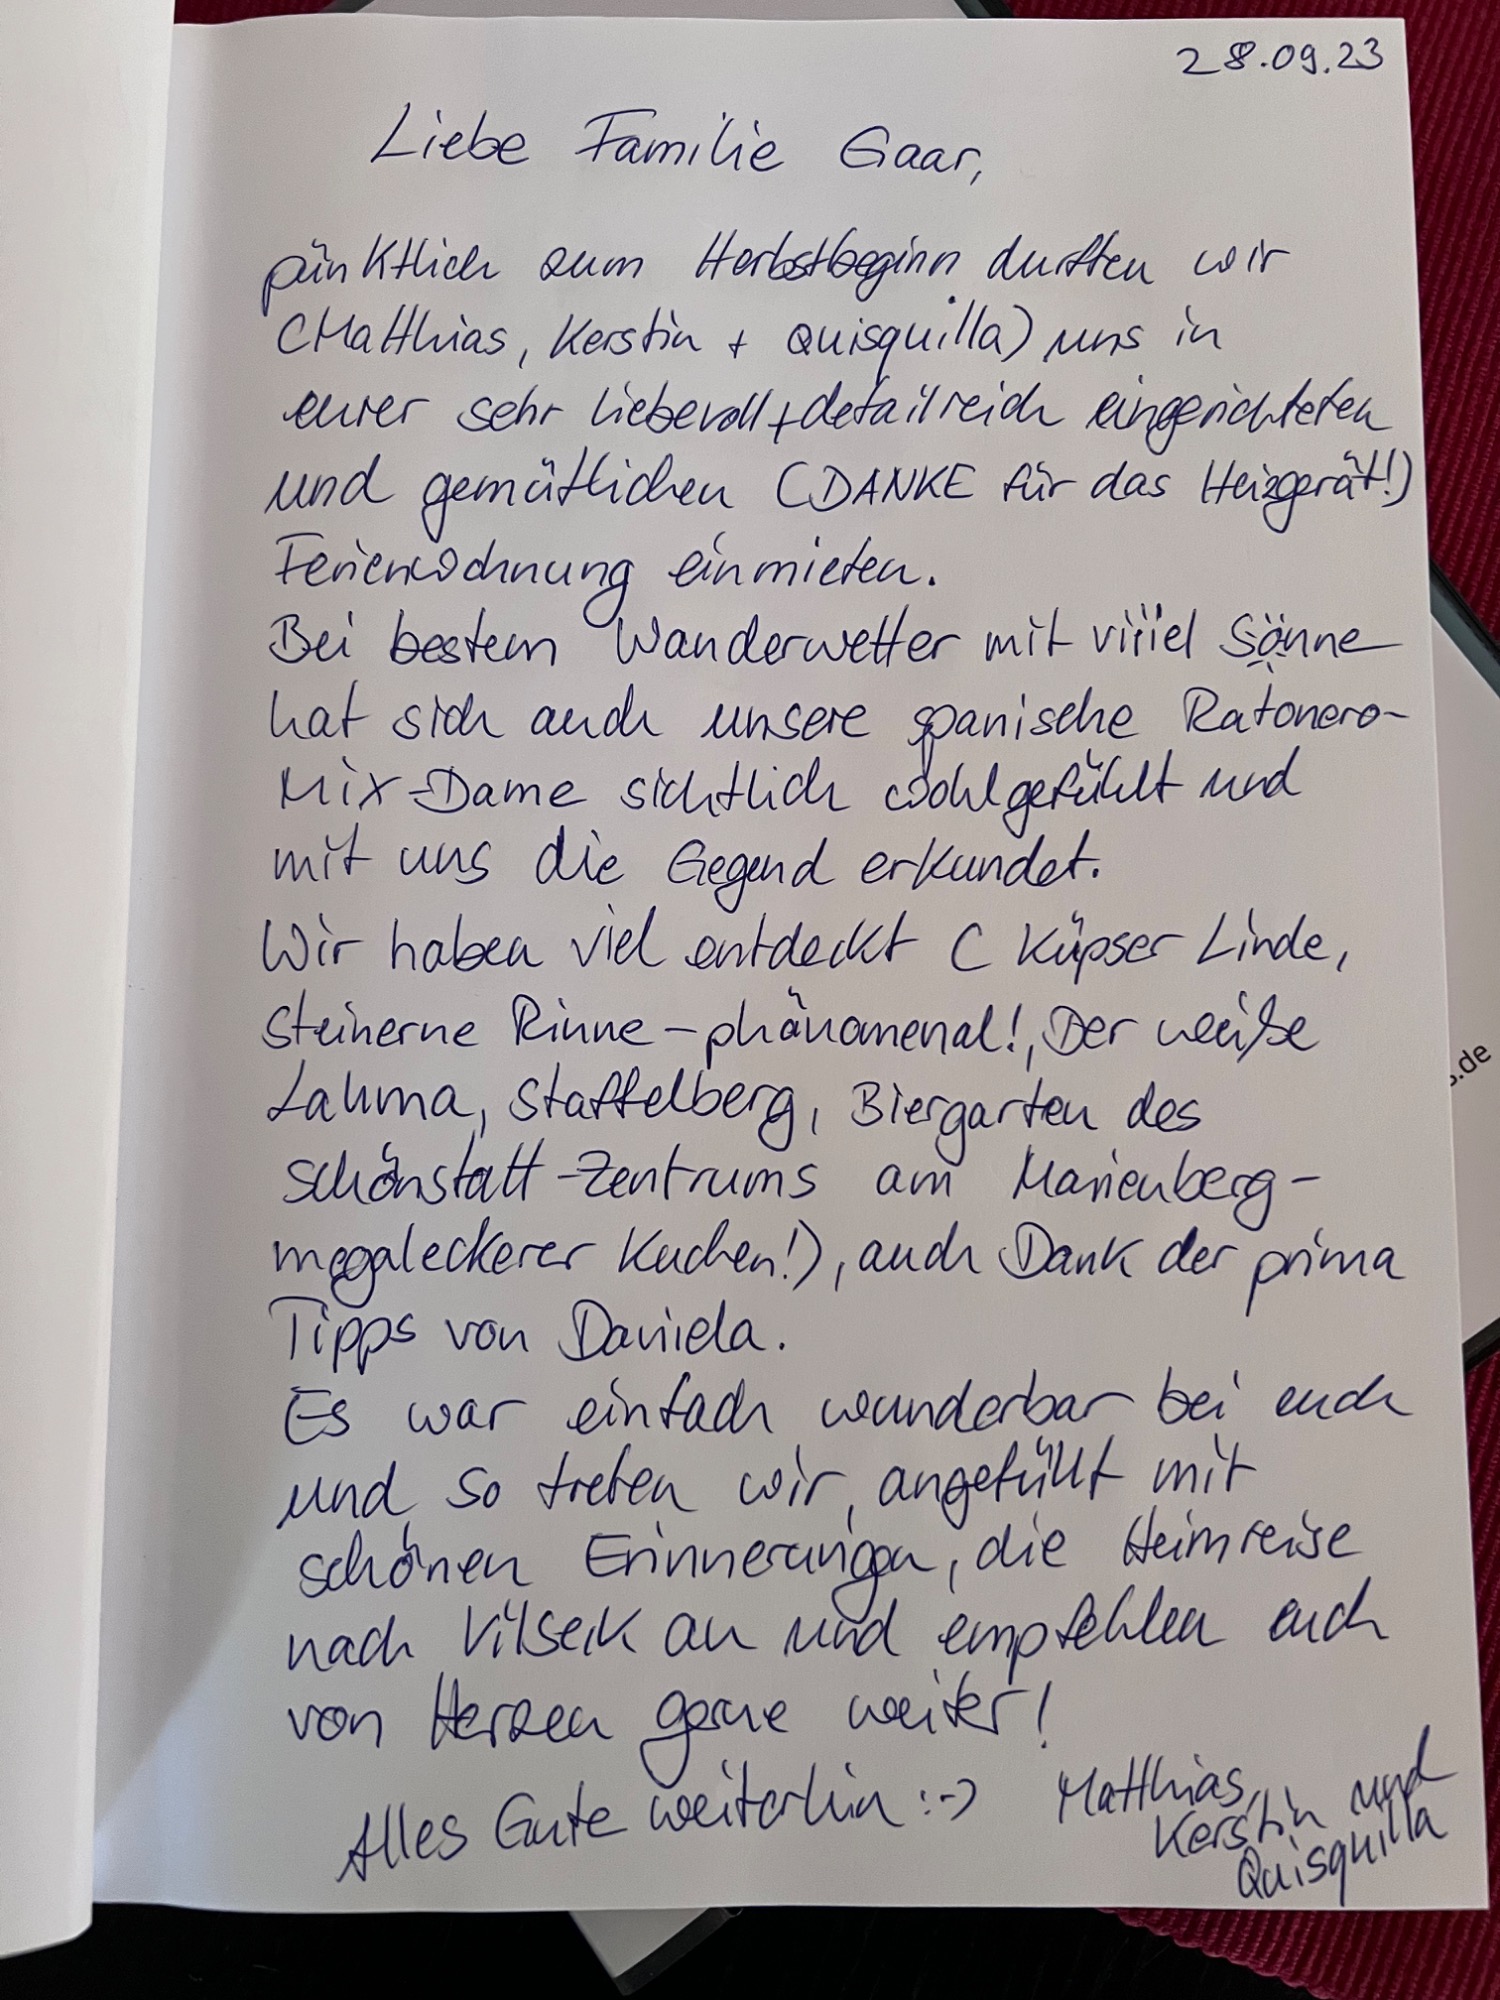 28.09.23
Liebe Familie Gaar,
pünktlich zum Herbstbeginn durften wir
(Matthias, Kerstin + Quisquilla) uns in
eurer sehr liebevoll + detailreich eingerichteten
und gemütlichen (DANKE für das Heizgerät!)
Ferienwohnung einmieten.
Bei bestem Wanderwetter mit viiiel Sonne
hat sich auch unsere spanische Ratonero-
Mix-Dame sichtlich wohlgefühlt und
mit uns die Gegend erkundet.
Wir haben viel entdeckt (Küpser Linde,
Steinerne Rinne - phänomenal!, Der weiße
Lahma, Staffelberg, Biergarten des
Schönstatt-Zentrums am Marienberg -
megaleckerer Kuchen!), auch Dank der prima
Tipps von Daniela.
Es war einfach wunderbar bei euch
und so treten wir, angefüllt mit
schönen Erinnerungen, die Heimreise
nach Vilseck an und empfehlen euch
von Herzen gerne weiter!
Alles Gute weiterhin :-) Matthias,
Kerstin und
Quisquilla
s.de